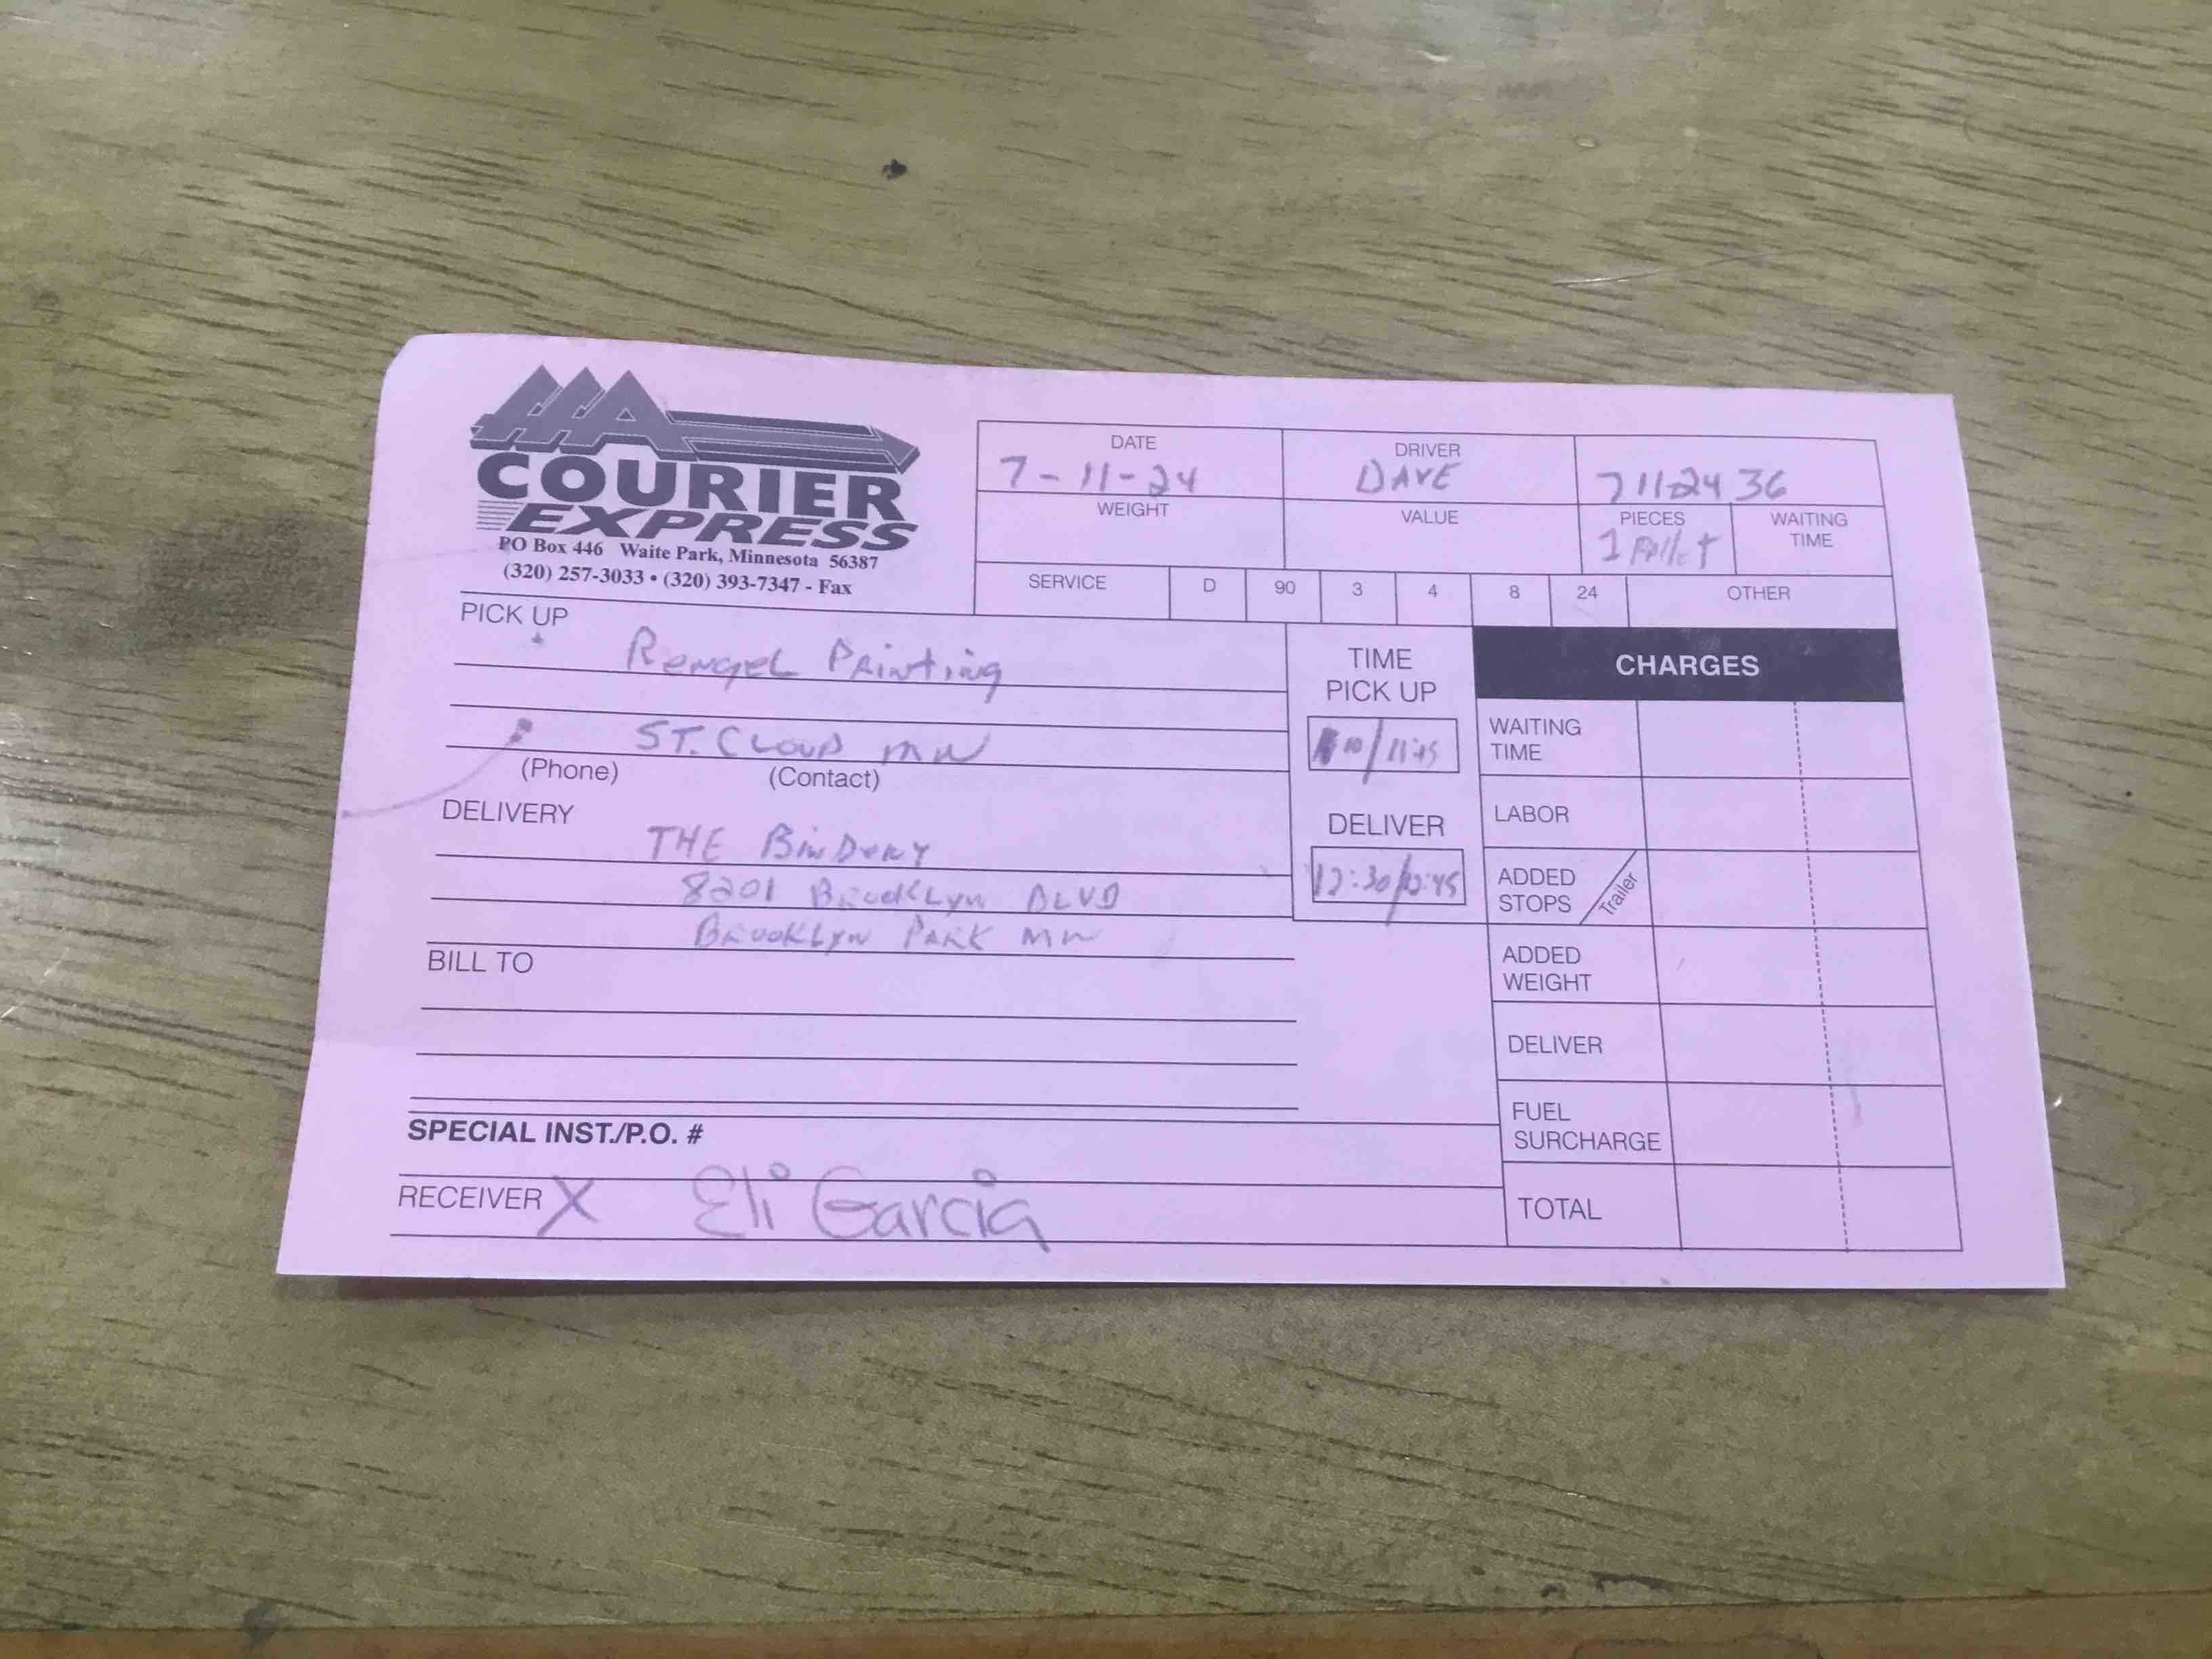 AAA
COURIER
EXPRESS
PO Box 446 Waite Park, Minnesota 56387
(320) 257-3033 • (320) 393-7347 - Fax
DATE
7-11-24
DRIVER
DAVE
7112436
WEIGHT
VALUE
PIECES
1 Pallet
WAITING
TIME
SERVICE D 90 3 4 8 24 OTHER
PICK UP
Rengel Printing
ST. CLOUD MN
(Phone) (Contact)
TIME
PICK UP
10/11:45
DELIVERY
THE BINDERY
8201 BROOKLYN BLVD
BROOKLYN PARK MN
DELIVER
12:30/12:45
BILL TO
SPECIAL INST./P.O. #
RECEIVER X Eli Garcia
CHARGES
WAITING
TIME
LABOR
ADDED
STOPS Trailer
ADDED
WEIGHT
DELIVER
FUEL
SURCHARGE
TOTAL